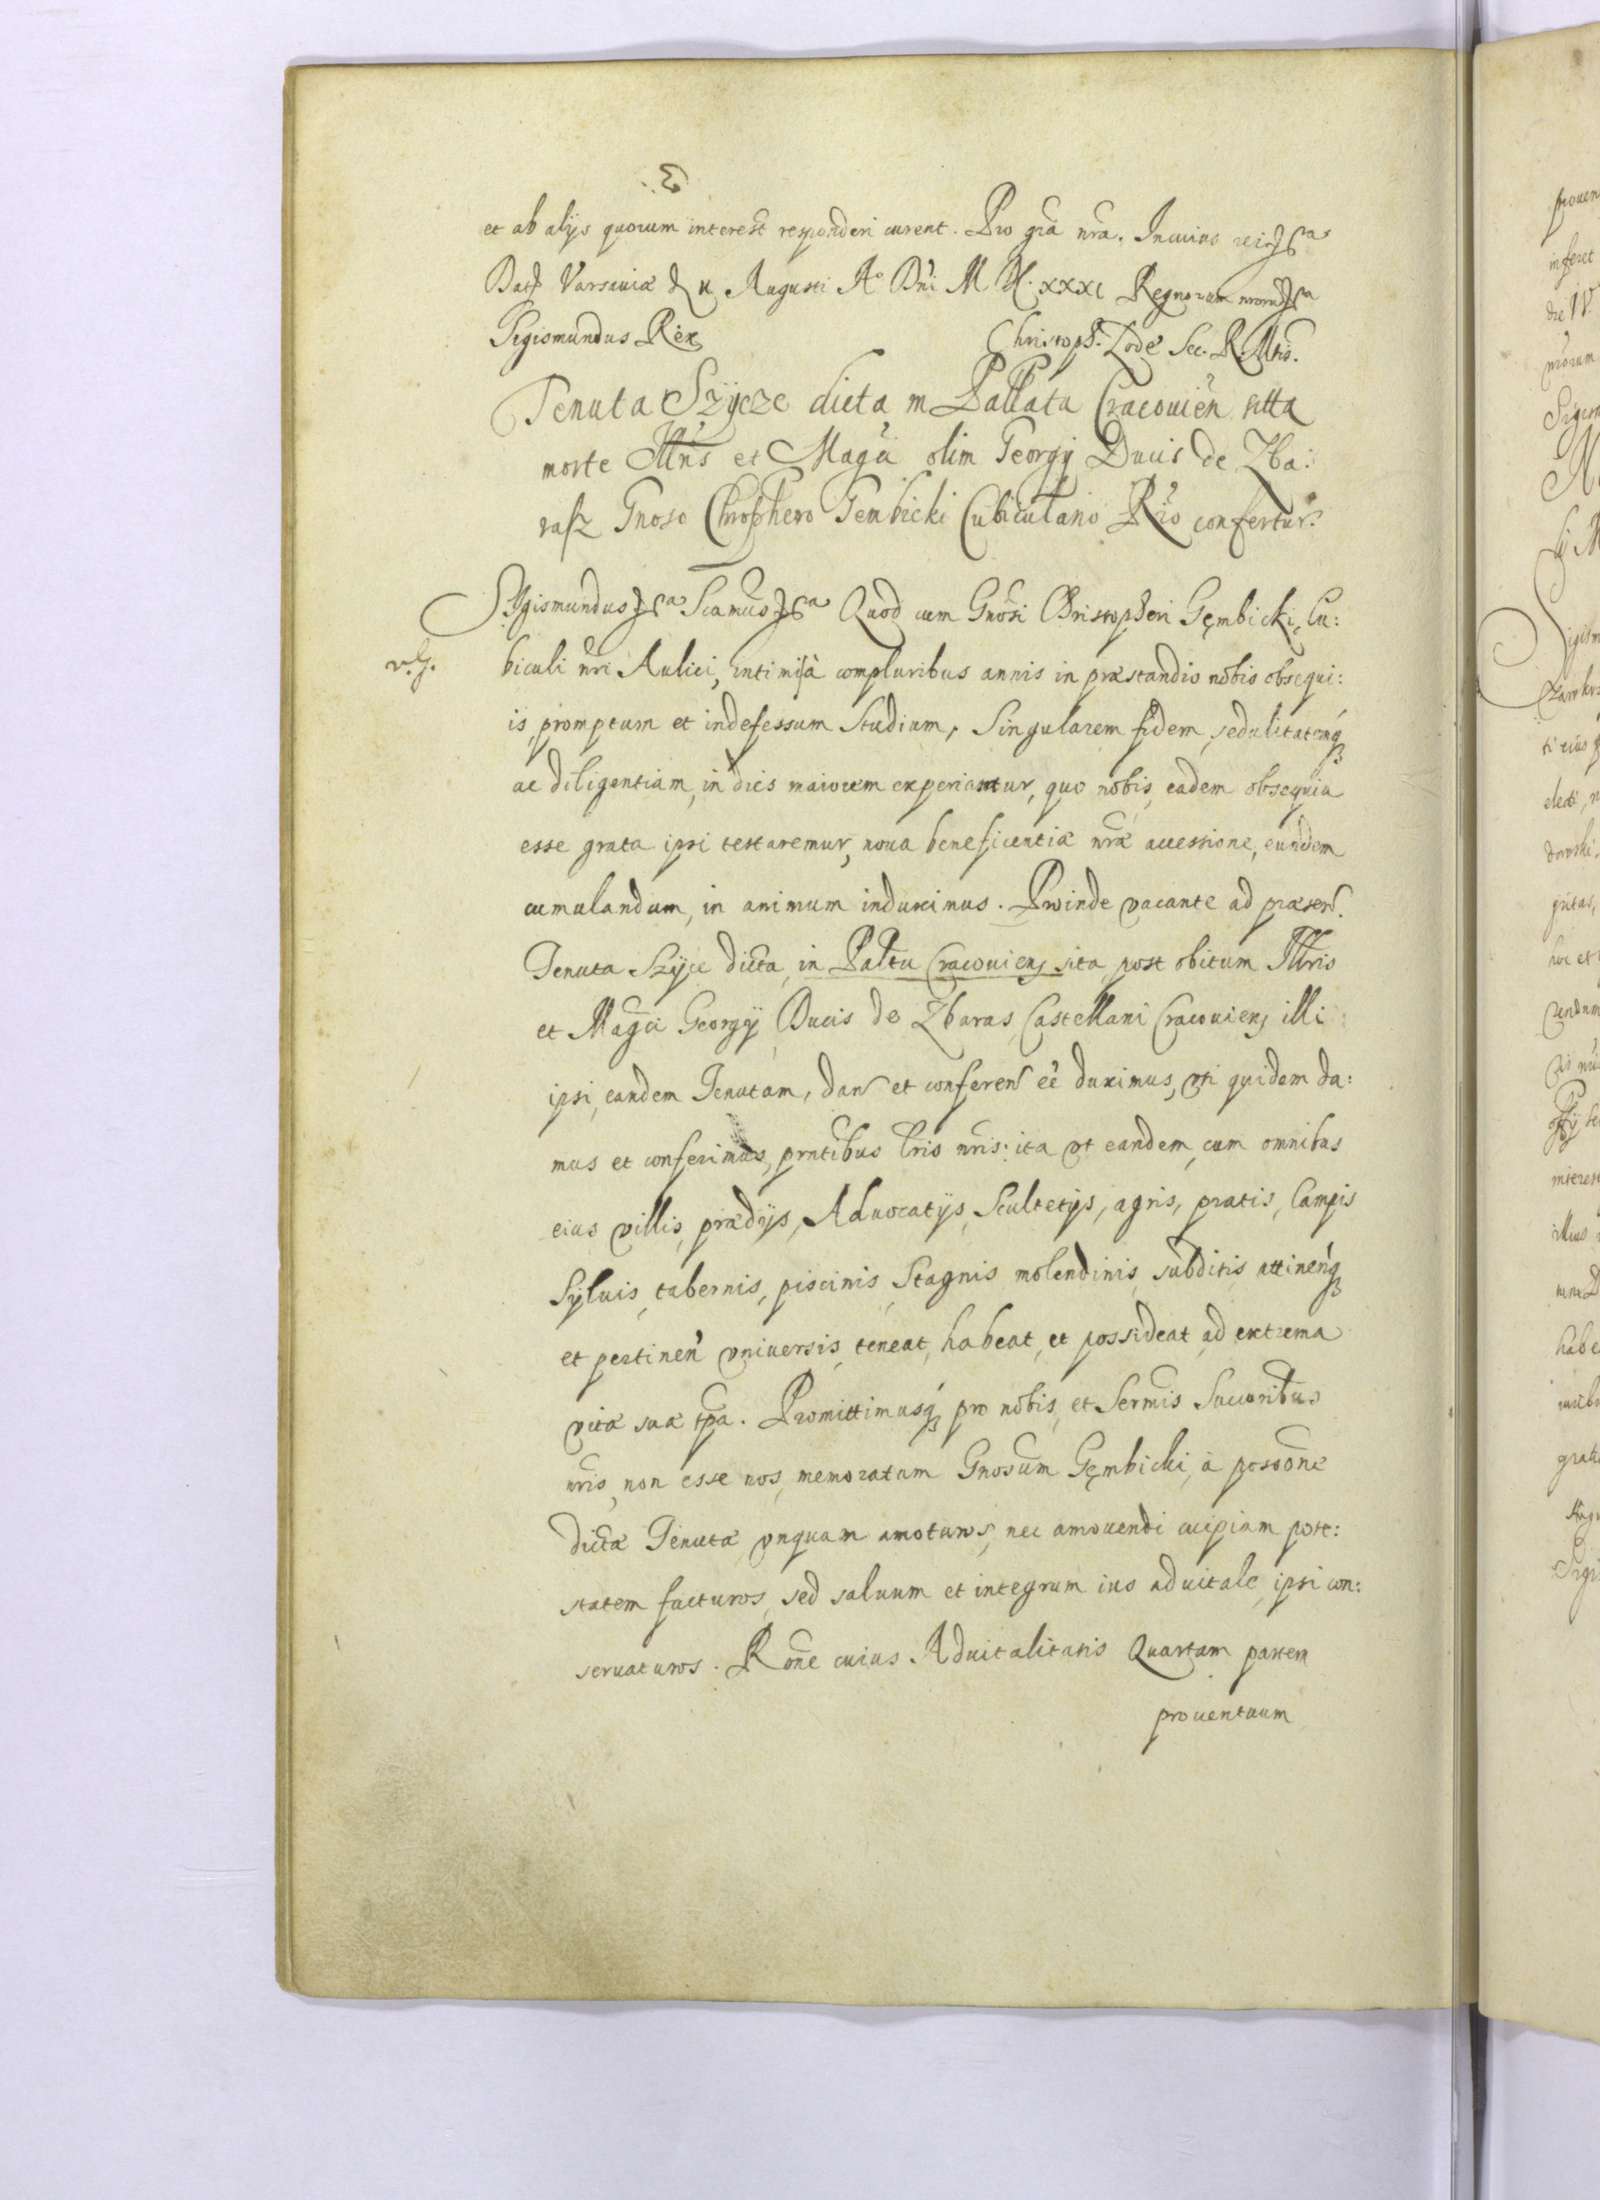 et ab alijs quorum interest responderi curent. Pro gra nra. In cuius rei &ca
Dat Varsauiæ d V Augusti Ao Dni M DC. XXXI Regnorum nrorum &ca
Sigismundus Rex Christoph. Zode Sec. R. Mtis.
Tenuta Szÿcze dicta in Pallatu Cracouien sitta
morte Illris et Magci olim Georgij Ducis de Zba:
rasz Gnoso Chrophero Gembicki Cubiculario Rio confertur.
Sigismundus &ca Scamus &ca Quod cum Gnosi Christopheri Gęmbicki, Cu:
v. G. biculi nri Aulici, intimi, à compluribus annis in præstandis nobis obsequi:
is, promptum et indefessum Studium, Singularem fidem, sedulitatemq
ac diligentiam, in dies maiorem experiamur, quo nobis, eadem obsequia
esse grata ipsi testaremur, noua beneficentiæ nræ accessione, eundem
cumulandum, in animum induximus. Proinde vacante ad præsens
Tenuta Szÿce dicta, in Paltu Cracouien sita, post obitum Illris
et Magci Georgij Ducis de Zbaras Castellani Cracouien illi
ipsi, eandem Tenutam, dan et conferen eẽ duximus, vti quidem da:
mus et conferimus, prntibus lris nris: ita vt eandem, cum omnibus
eius villis, prædijs, Aduocatijs, Scultetijs, agris, pratis, Campis
Syluis, tabernis, piscinis, Stagnis molendinis, subditis, attinenq
et pertinen vniuersis, teneat, habeat, et possideat, ad extrema
vitæ suæ tpa. Promittimusq pro nobis, et Sermis Succoribus
nris, non esse nos, memoratum Gnosum Gęmbicki, à possone
dictæ Tenutæ vnquam amoturos, nec amouendi cuipiam pote:
statem facturos, sed saluum et integrum ius aduitale, ipsi con:
seruaturos. Rone cuius Aduitalitatis Quartam partem
prouentuum